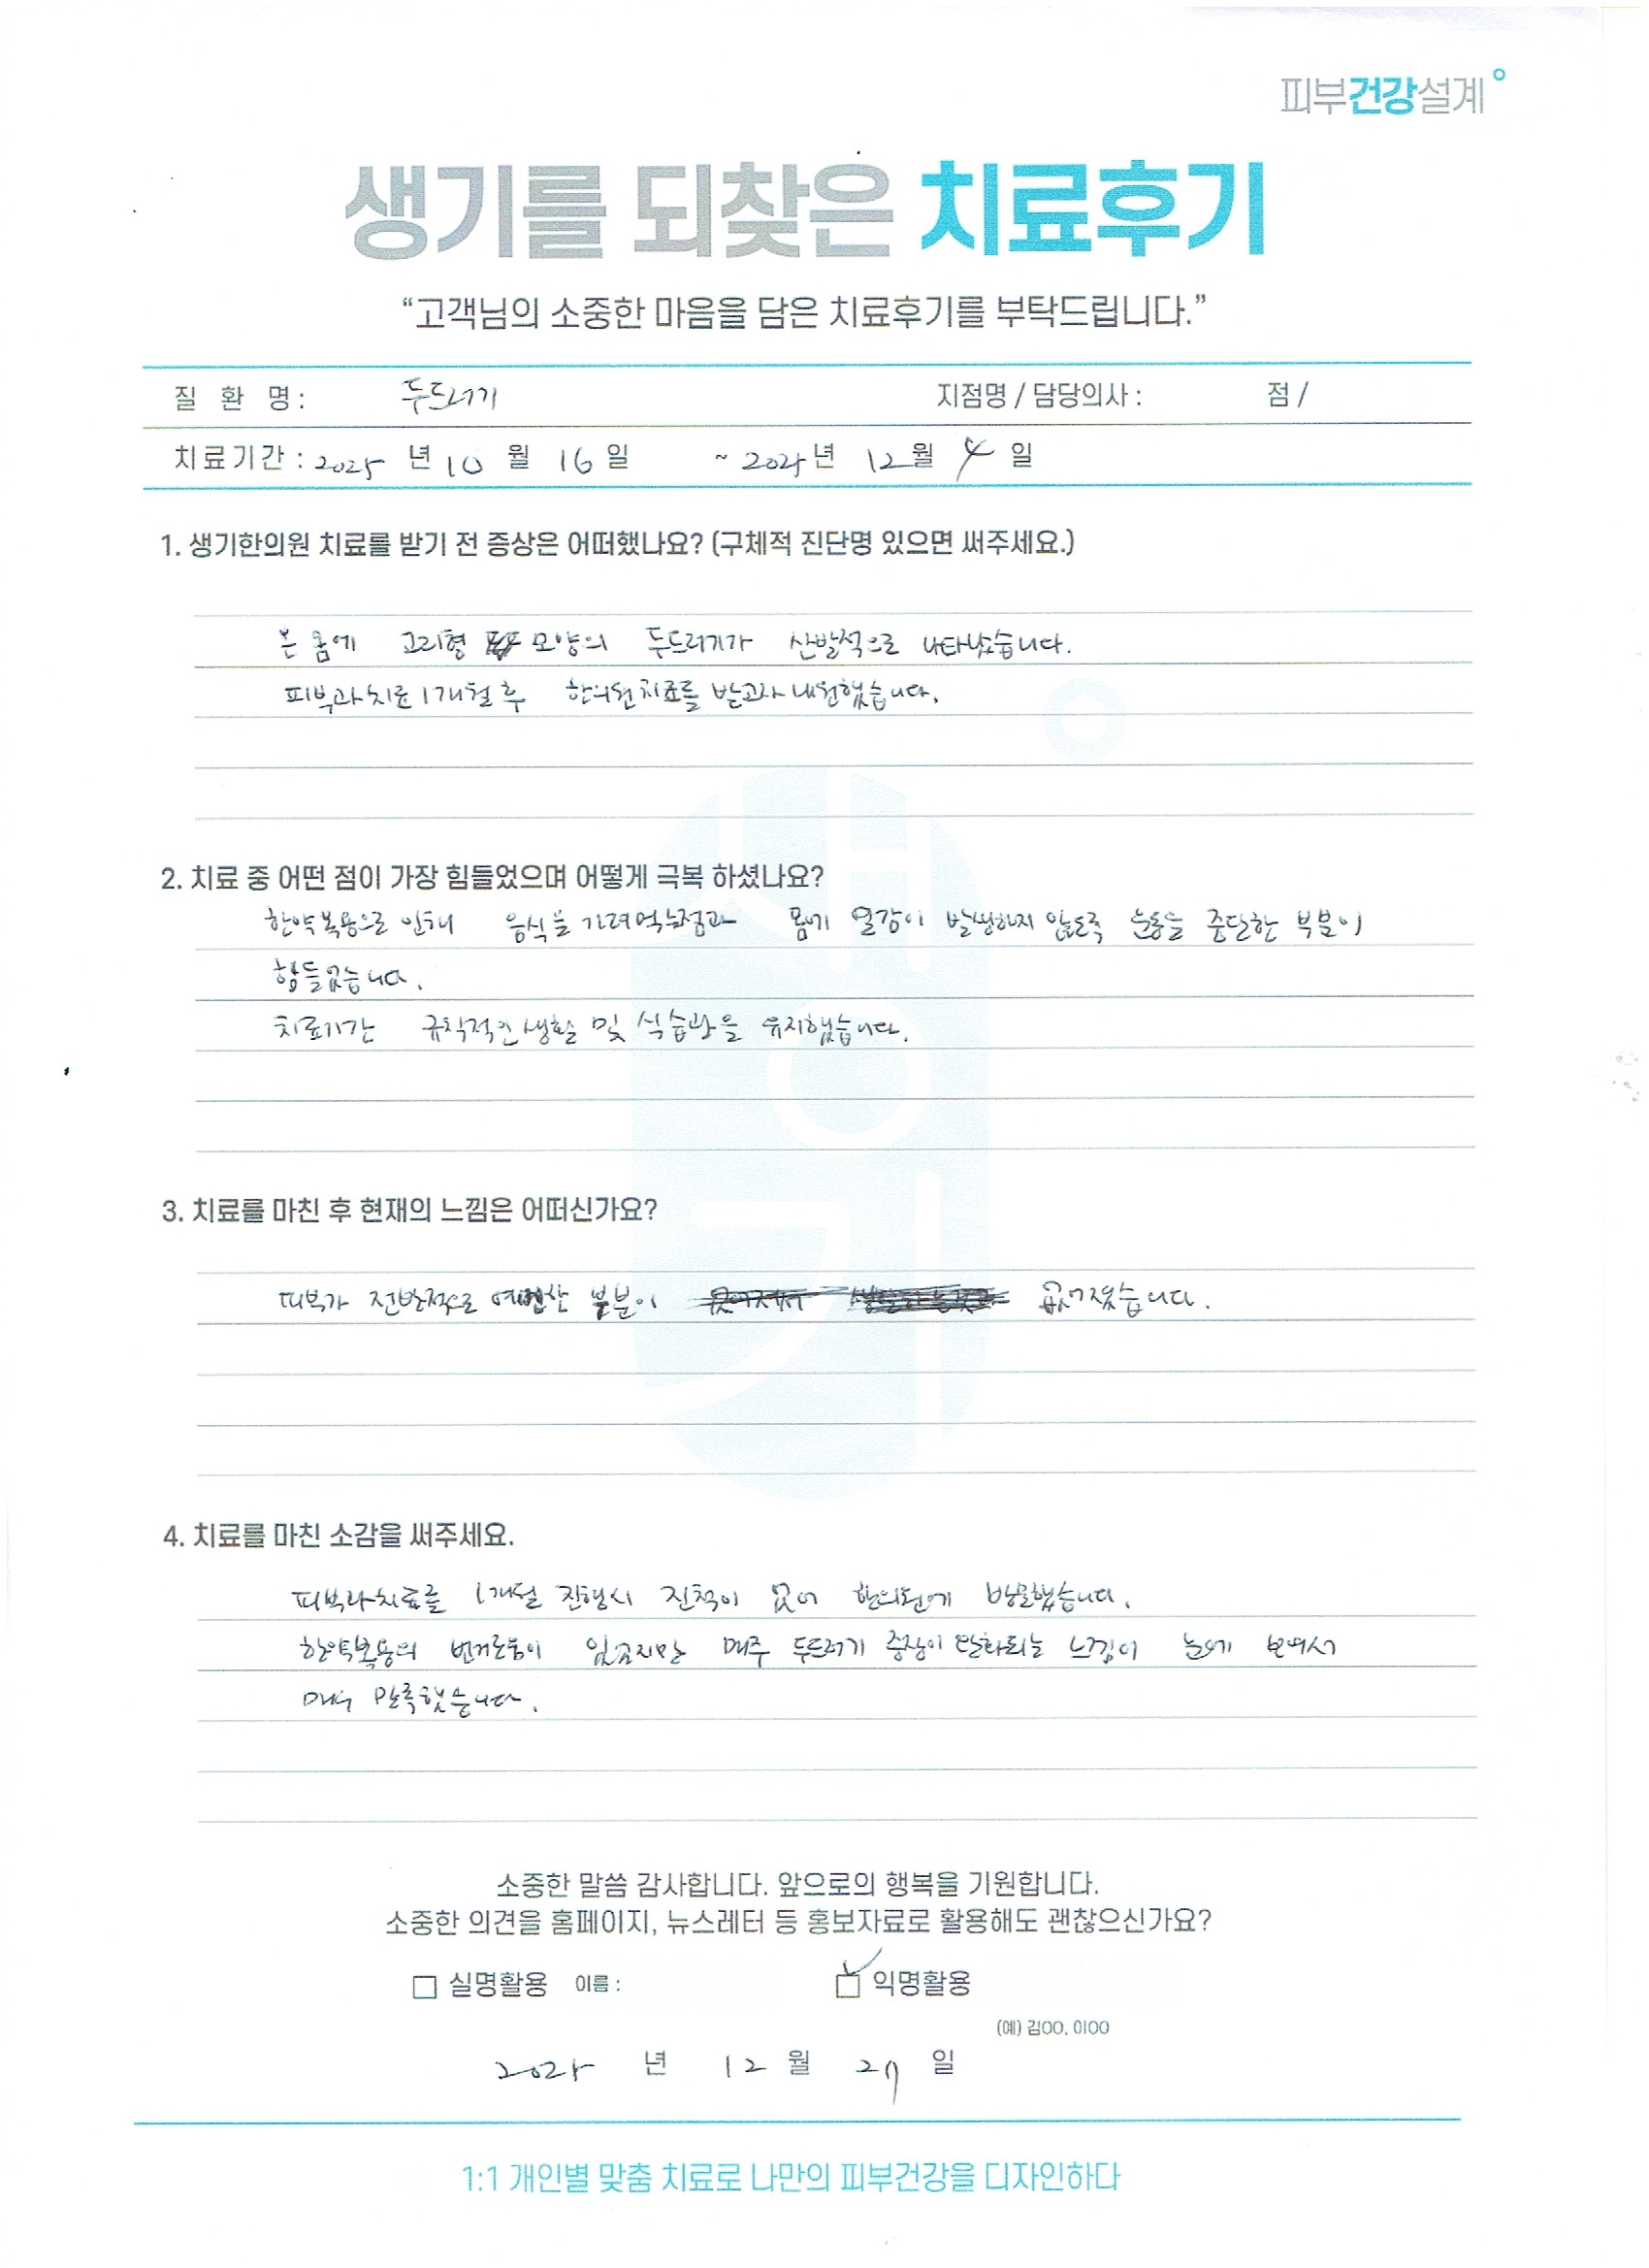 피부건강설계
생기를 되찾은 치료후기
“고객님의 소중한 마음을 담은 치료후기를 부탁드립니다.”
질 환 명 : 두드러기 지점명 / 담당의사 : 점 /
치료기간 : 2025 년 10 월 16 일 ~ 2025년 12월 4 일
1. 생기한의원 치료를 받기 전 증상은 어떠했나요? (구체적 진단명 있으면 써주세요.)
온 몸에 고리형 모양의 두드러기가 산발적으로 나타났습니다.
피부과치료 1개월 후 한의원치료를 받고자 내원했습니다.
2. 치료 중 어떤 점이 가장 힘들었으며 어떻게 극복 하셨나요?
한약복용으로 인해 음식을 가려먹는점과 몸에 열감이 발생하지 않도록 운동을 중단한 부분이
힘들었습니다.
치료기간 규칙적인 생활 및 식습관을 유지했습니다.
3. 치료를 마친 후 현재의 느낌은 어떠신가요?
피부가 전반적으로 예민한 부분이 없어졌습니다.
4. 치료를 마친 소감을 써주세요.
피부과치료를 1개월 진행시 진척이 없어 한의원에 방문했습니다.
한약복용의 번거로움이 있긴지만 매주 두드러기 증상이 완화되는 느낌이 눈에 보여서
매우 만족했습니다.
소중한 말씀 감사합니다. 앞으로의 행복을 기원합니다.
소중한 의견을 홈페이지, 뉴스레터 등 홍보자료로 활용해도 괜찮으신가요?
실명활용 이름 : 익명활용
(예) 김OO, 이OO
2025 년 12 월 27 일
1:1 개인별 맞춤 치료로 나만의 피부건강을 디자인하다
생기